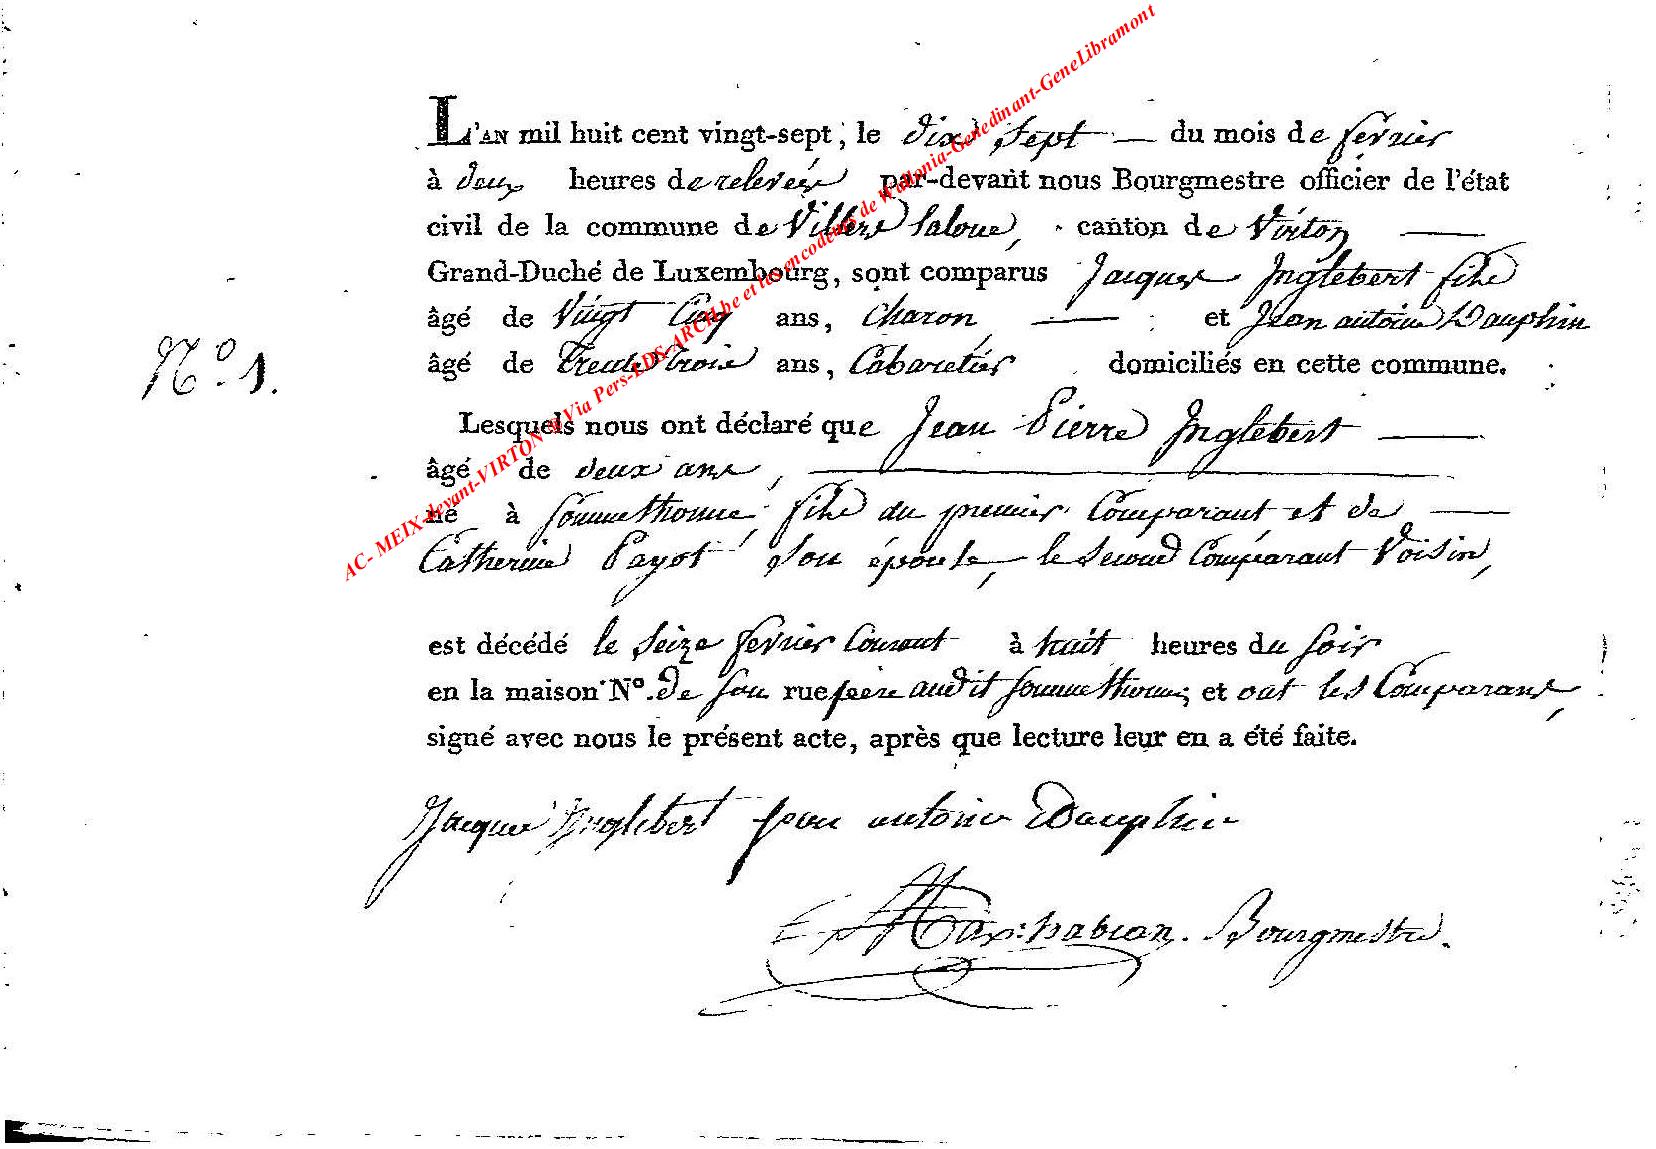 AC- MEIX-devant-VIRTON @ Via Pers-EDS-ARCH.be et les encodeurs de Wallonia-Genedinant-GeneLibramont
L'AN mil huit cent vingt-sept, le dix Sept du mois de fevrier
à deux heures de relevée par-devant nous Bourgmestre officier de l'état
civil de la commune de Villers laloue, canton de Virton
Grand-Duché de Luxembourg, sont comparus Jacques Inglebert fils
âgé de Vingt Cinq ans, Charon, et Jean antoine Dauphin
N.º 1.
âgé de trente trois ans, Cabaretier domiciliés en cette commune.
Lesquels nous ont déclaré que Jean Pierre Inglebert
âgé de deux ans,
né à Sommethonne, fils du premier Comparant et de
Catherine Payot son épouse, le second Comparant Voisin,
est décédé le Seize fevrier Courant à huit heures du soir
en la maison Nº. de son rue père audit Sommethonne, et ont les Comparans,
signé avec nous le présent acte, après que lecture leur en a été faite.
Jacques Inglebert jean antoine Dauphin
Bourgmestre.